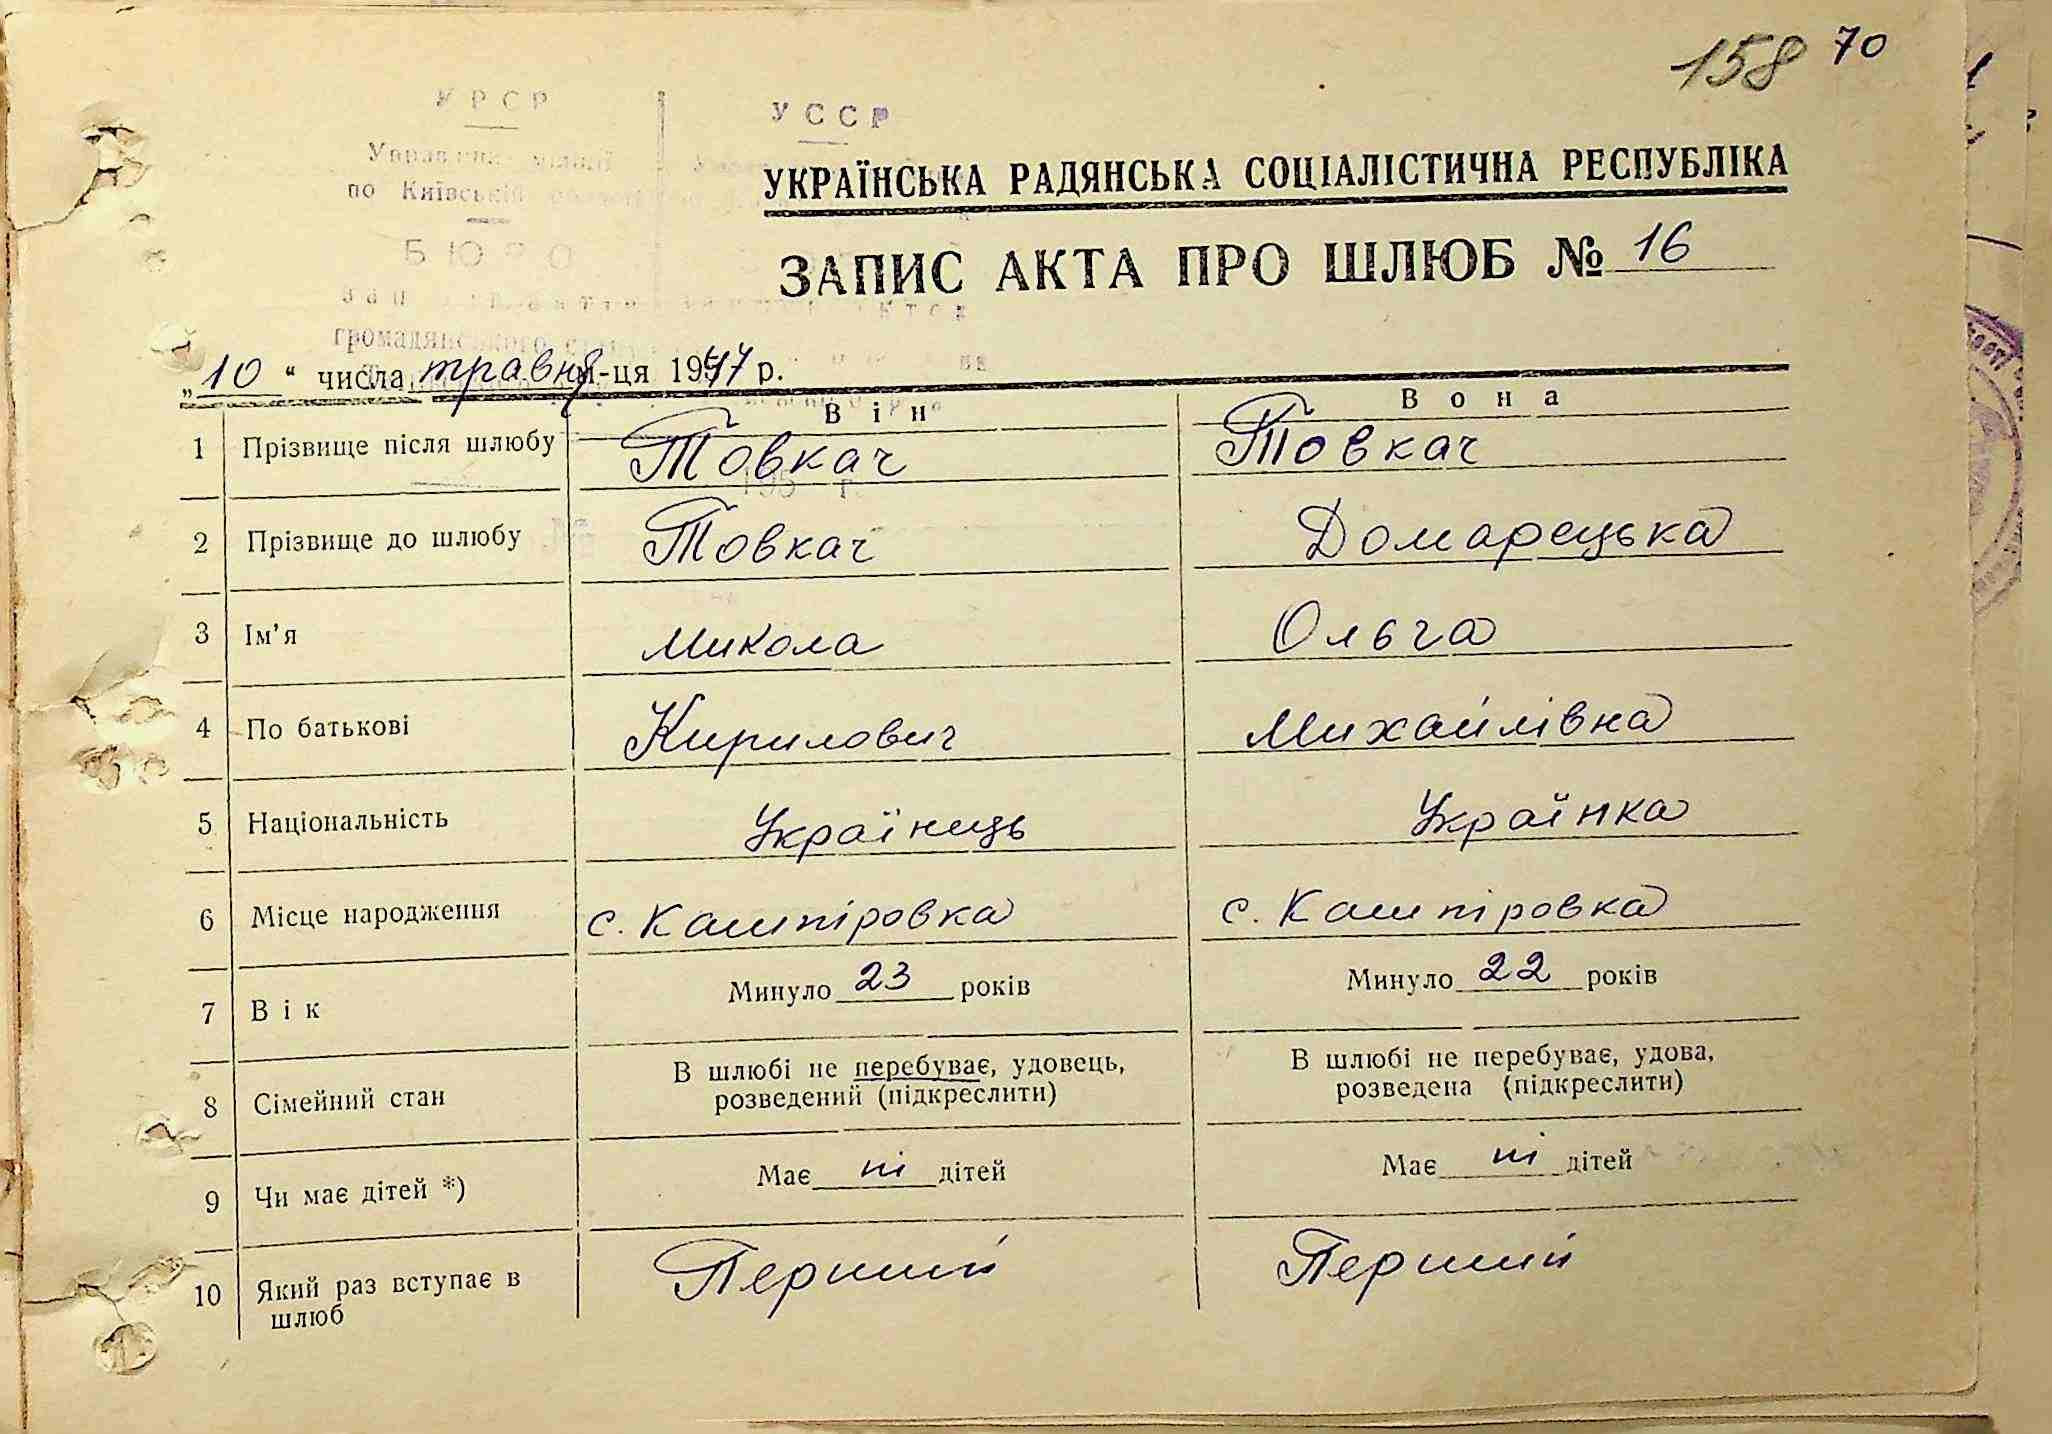 158 70
УРСР
УССР
по Київській
БЮРО
УКРАЇНСЬКА РАДЯНСЬКА СОЦІАЛІСТИЧНА РЕСПУБЛІКА
ЗАПИС АКТА ПРО ШЛЮБ № 16
громадянського
„10“ числа травня м-ця 1947 р.
Він Вона
1 Прізвище після шлюбу Товкач Товкач
195 г.
2 Прізвище до шлюбу Товкач Домарецька
3 Ім’я Микола Ольга
4 По батькові Кирилович Михайлівна
5 Національність Українець Українка
6 Місце народження с. Кашпіровка с. Кашпіровка
7 Вік Минуло 23 років Минуло 22 років
8 Сімейний стан В шлюбі не перебуває, удовець, В шлюбі не перебуває, удова,
розведений (підкреслити) розведена (підкреслити)
9 Чи має дітей *) Має ні дітей Має ні дітей
10 Який раз вступає в Перший Перший
шлюб